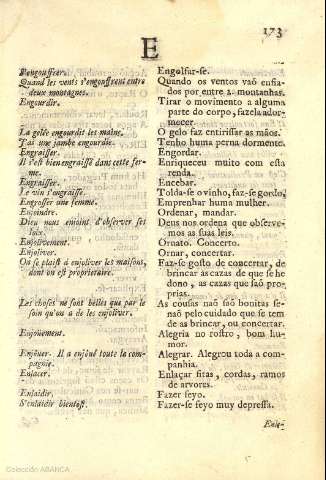 173
E
S'engouffrer.
Quand les vents s'engouffrent entre
deux montagnes.
Engourdir.
La gelée engourdit les mains.
J'ai une jambe engourdie.
Engraisser.
Il s'est bien engraissé dans cette fer-
me.
Engraisser.
Le vin s'engraisse.
Engrosser une femme.
Enjoindre.
Dieu nous enjoint d'observer ses
loix.
Enjolivement.
Enjoliver.
On se plaist à enjoliver les maisons,
dont on est proprietaire.
Les choses ne sont belles que par le
soin qu'on a de les enjoliver.
Enjoüement.
Enjoüer. Il a enjoüé toute la com-
pagnie.
Enlacer.
Enlaidir.
S'enlaidir bientost.
Engolfar-se.
Quando os ventos vaõ enfia-
dos por entre 2. montanhas.
Tirar o movimento a alguma
parte do corpo, fazela ador-
mecer.
O gelo faz entirissar as mãos.
Tenho huma perna dormente.
Engordar.
Enriqueceu muito com esta
renda.
Encebar.
Tolda-se o vinho, faz-se gordo.
Emprenhar huma mulher.
Ordenar, mandar.
Deus nos ordena que observe-
mos as suas leis.
Ornato. Concerto.
Ornar, concertar.
Faz-se gosto de concertar, de
brincar as cazas de que se he
dono, as cazas que saõ pro-
prias.
As cousas naõ saõ bonitas se-
naõ pelo cuidado que se tem
de as brincar, ou concertar.
Alegria no rostro, bom hu-
mor.
Alegrar. Alegrou toda a com-
panhia.
Enlaçar fitas, cordas, ramos
de arvores.
Fazer feyo.
Fazer-se feyo muy depressa.
Enle-
Colección ABANCA